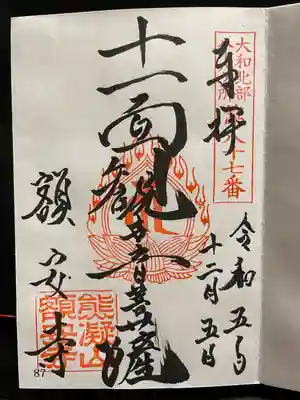 奉拝
大和北部
八十八ヶ所第八十七番
令和五年
十二月五日
十一面観世音菩薩
額安寺
熊凝山
額安寺
87